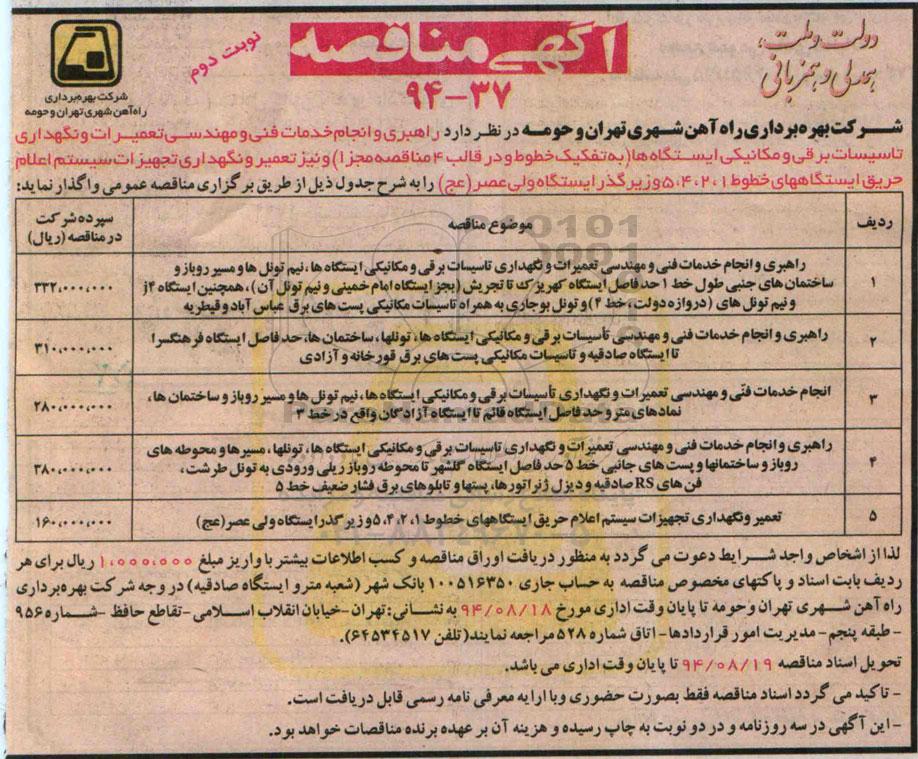 دولت و ملت،
همدلی و همزبانی
آگهی مناقصه
نوبت دوم
۹۴-۳۷
شرکت بهره برداری
راه آهن شهری تهران و حومه
شرکت بهره برداری راه آهن شهری تهران و حومه در نظر دارد راهبری و انجام خدمات فنی و مهندسی تعمیرات و نگهداری
تاسیسات برقی و مکانیکی ایستگاه ها (به تفکیک خطوط و در قالب ۴ مناقصه مجزا) و نیز تعمیر و نگهداری تجهیزات سیستم اعلام
حریق ایستگاههای خطوط ۵،۴،۲،۱ و زیرگذر ایستگاه ولی عصر (عج) را به شرح جدول ذیل از طریق برگزاری مناقصه عمومی واگذار نماید:
ردیف موضوع مناقصه سپرده شرکت
در مناقصه (ریال)
۱ راهبری و انجام خدمات فنی و مهندسی تعمیرات و نگهداری تاسیسات برقی و مکانیکی ایستگاه ها، نیم تونل ها و مسیر روباز و
ساختمان های جنبی طول خط ۱ حد فاصل ایستگاه کهریزک تا تجریش (بجز ایستگاه امام خمینی و نیم تونل آن)، همچنین ایستگاه j۴ ۳۳۲,۰۰۰,۰۰۰
و نیم تونل های (دروازه دولت، خط ۴) و تونل بوجاری به همراه تاسیسات مکانیکی پست های برق عباس آباد و قیطریه
۲ راهبری و انجام خدمات فنی و مهندسی تأسیسات برقی و مکانیکی ایستگاه ها، تونلها، ساختمان ها، حد فاصل ایستگاه فرهنگسرا ۳۱۰,۰۰۰,۰۰۰
تا ایستگاه صادقیه و تاسیسات مکانیکی پست های برق قورخانه و آزادی
۳ انجام خدمات فنّی و مهندسی تعمیرات و نگهداری تأسیسات برقی و مکانیکی ایستگاه ها، نیم تونل ها و مسیر روباز و ساختمان ها، ۲۸۰,۰۰۰,۰۰۰
نمادهای مترو حد فاصل ایستگاه قائم تا ایستگاه آزادگان واقع در خط ۳
۴ راهبری و انجام خدمات فنی و مهندسی تعمیرات و نگهداری تاسیسات برقی و مکانیکی ایستگاه ها، تونلها، مسیرها و محوطه های
روباز و ساختمانها و پست های جانبی خط ۵ حد فاصل ایستگاه گلشهر تا محوطه روباز ریلی ورودی به تونل طرشت، ۳۸۰,۰۰۰,۰۰۰
فن های RS صادقیه و دیزل ژنراتورها، پستها و تابلوهای برق فشار ضعیف خط ۵
۵ تعمیر و نگهداری تجهیزات سیستم اعلام حریق ایستگاههای خطوط ۵،۴،۲،۱ و زیرگذر ایستگاه ولی عصر (عج) ۱۶۰,۰۰۰,۰۰۰
لذا از اشخاص واجد شرایط دعوت می گردد به منظور دریافت اوراق مناقصه و کسب اطلاعات بیشتر با واریز مبلغ ۱,۰۰۰,۰۰۰ ریال برای هر
ردیف بابت اسناد و پاکتهای مخصوص مناقصه به حساب جاری ۱۰۰۵۱۶۳۵۰ بانک شهر (شعبه مترو ایستگاه صادقیه) در وجه شرکت بهره برداری
راه آهن شهری تهران و حومه تا پایان وقت اداری مورخ ۹۴/۰۸/۱۸ به نشانی: تهران - خیابان انقلاب اسلامی - تقاطع حافظ - شماره ۹۵۶
- طبقه پنجم - مدیریت امور قراردادها - اتاق شماره ۵۲۸ مراجعه نمایند (تلفن ۶۴۵۳۴۵۱۷).
تحویل اسناد مناقصه ۹۴/۰۸/۱۹ تا پایان وقت اداری می باشد.
- تاکید می گردد اسناد مناقصه فقط بصورت حضوری و با ارایه معرفی نامه رسمی قابل دریافت است.
- این آگهی در سه روزنامه و در دو نوبت به چاپ رسیده و هزینه آن بر عهده برنده مناقصات خواهد بود.